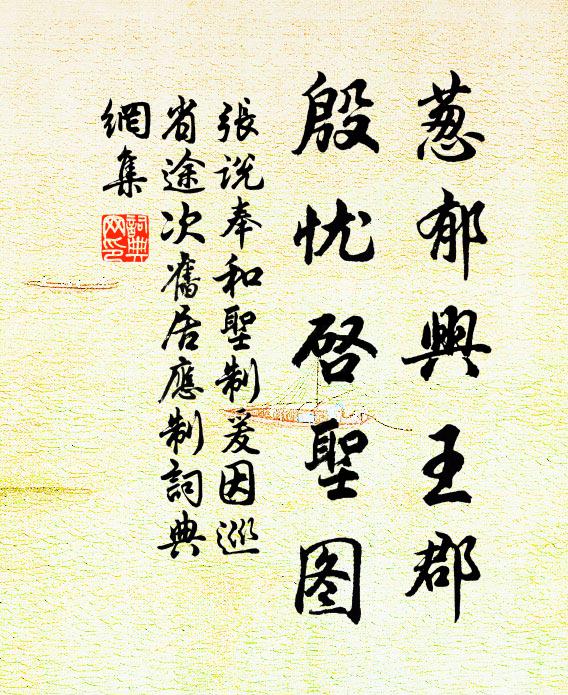 葱郁興王郡
殷忧啓聖图
張説奉和聖制爰因巡
省途次舊居應制詞典
網集
詞典
网印